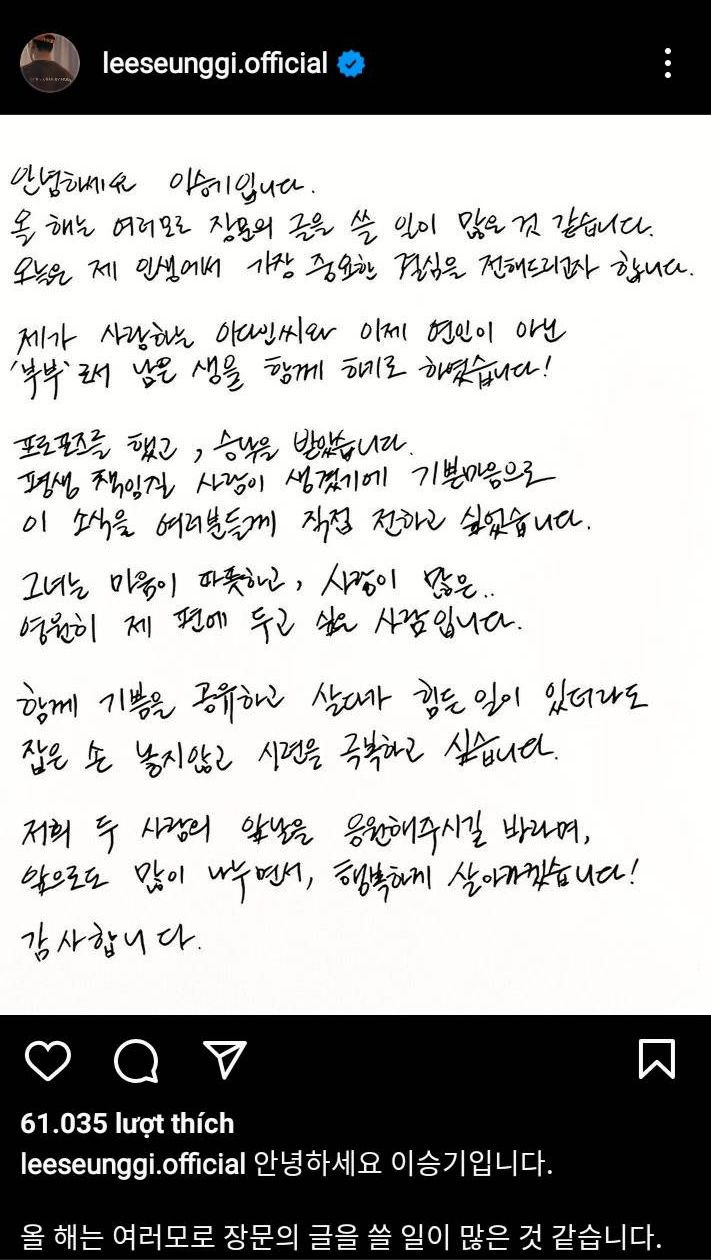 leeseunggi.official
안녕하세요 이승기입니다.
올 해는 여러모로 장문의 글을 쓸 일이 많은 것 같습니다.
오늘은 제 인생에서 가장 중요한 결심을 전해드리고자 합니다.
제가 사랑하는 이다인씨와 이제 연인이 아닌
'부부'로서 남은 생을 함께 하기로 하였습니다!
프로포즈를 했고, 승낙을 받았습니다.
평생 책임질 사람이 생겼기에 기쁜마음으로
이 소식을 여러분들께 직접 전하고 싶었습니다.
그녀는 마음이 따뜻하고, 사랑이 많은..
영원히 제 편에 두고 싶은 사람입니다.
함께 기쁨을 공유하고 살다가 힘든 일이 있더라도
잡은 손 놓지않고 시련을 극복하고 싶습니다.
저희 두 사람의 앞날을 응원해주시길 바라며,
앞으로도 많이 나누면서, 행복하게 살아가겠습니다!
감사합니다.
61.035 lượt thích
leeseunggi.official 안녕하세요 이승기입니다.
올 해는 여러모로 장문의 글을 쓸 일이 많은 것 같습니다.